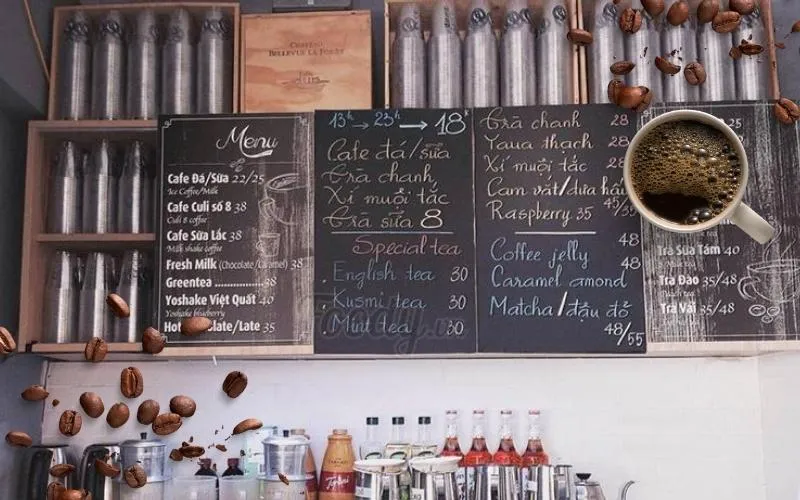 CHATEAU
BELLEVUE LA FORÊT
Menu
Cafe Đá/Sữa 22/25
Ice Coffee/Milk
Cafe Culi số 8 38
Culi 8 coffee
Cafe Sữa Lắc 38
Milk shake coffee
Fresh Milk (Chocolate/Caramel) 38
Greentea ............... 38
Yoshake Việt Quất 40
Yoshake blueberry
/Late 35
13h → 23h → 18
Cafe đá/sữa
Trà chanh
Xí muội tắc
Trà sữa 8
Special tea
English tea 30
Kusmi tea 30
Mint tea 30
Trà chanh 28
Yaua thạch 28
Xí muội tắc 28
Cam vắt/dừa
45/35
Raspberry 35
Coffee jelly 48
Caramel amond 48
Matcha/đậu đỏ
48/55
25
Trà Sữa Tấm 40
Trà Đào 35/48
Trà Vải 35/48
Foody.vn
Torani